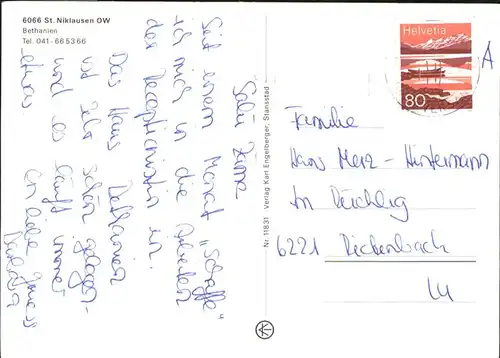 6066 St. Niklausen OW
Bethanien
Tel. 041-66 53 66
Salü Zäme
Seit einem Monat "schaffe"
ich mich in die Arbeiten
der Receptionistin in.
Das Haus Bethanien
ist sehr schön gelegen
und es läuft immer
etwas
Nr. 11831 Verlag: Karl Engelberger, Stansstad
Helvetia
80
A
Familie
Hans Merz-Hintermann
Im Deichlig
6221 Rickenbach
Lu